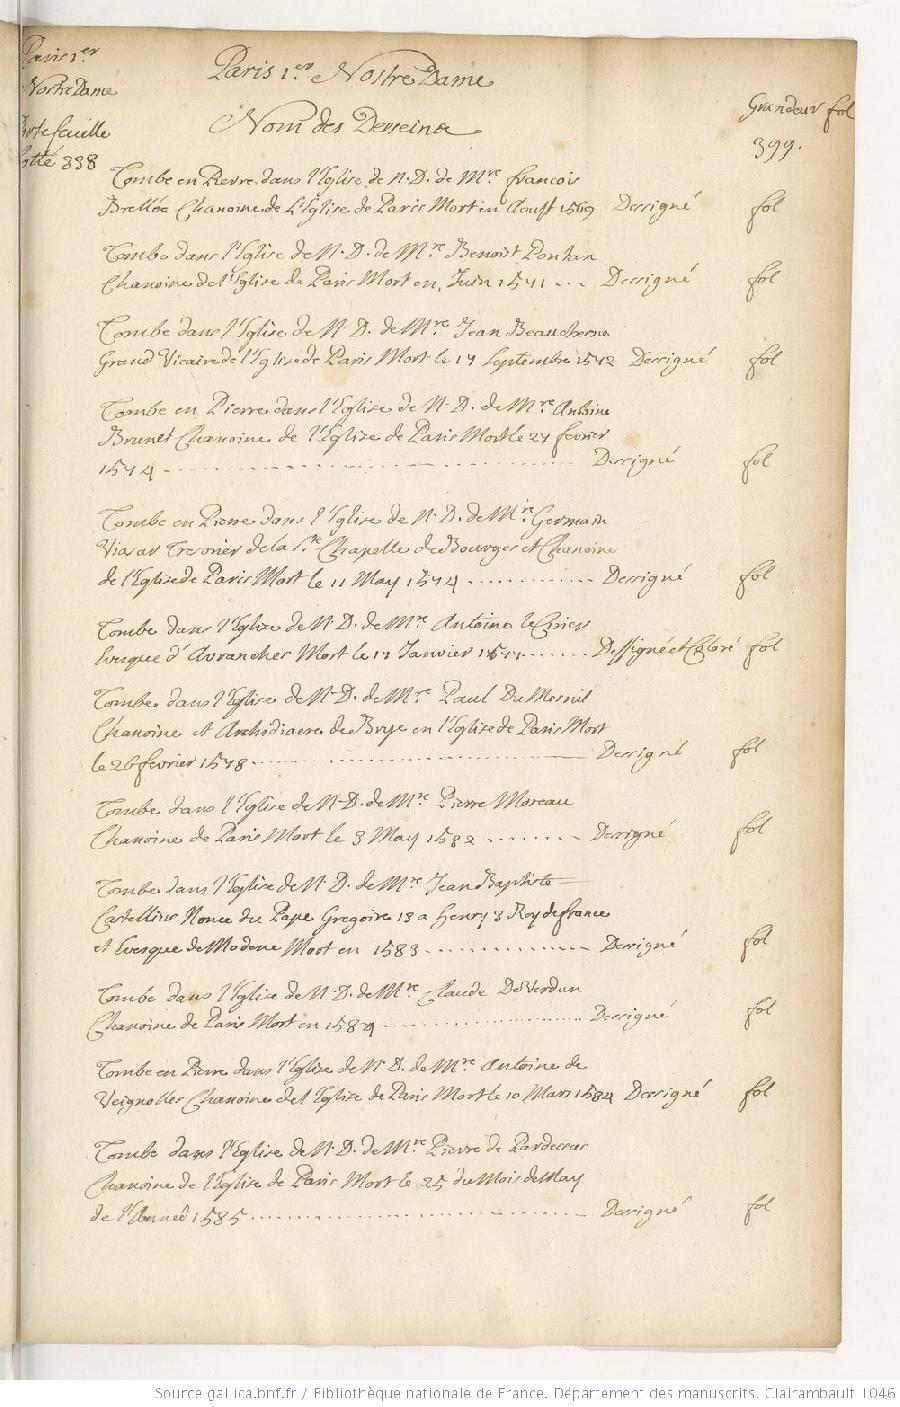 Paris 1.er
Nostre Dame
Portefeuille
Cotté 338
Paris 1.er Nostre Dame
Nom des Desseins
Grandeur fol
399.
Tombe en Pierre dans l'Eglise de N. D. de Mre francois
Chanoine de L'Eglise de Paris Mort en Aoust 1569 Dessigné fol
Tombe dans l'Eglise de N. D. de Mre Benoist
Chanoine de l'Eglise de Paris Mort en Juin 1571 ... Dessigné fol
Tombe dans l'Eglise de N. D. de Mre Jean
Grand Vicaire de l'Eglise de Paris Mort le 17 Septembre 1572 Dessigné fol
Tombe en Pierre dans l'Eglise de N. D. de Mre Antoine
Brunet Chanoine de l'Eglise de Paris Mort le 27 fevrier
1574 ........ Dessigné fol
Tombe en Pierre dans l'Eglise de N. D. de Mre Germain
Tresorier de la Ste Chapelle de Bourges et Chanoine
de l'Eglise de Paris Mort le 11 May 1574 ........ Dessigné fol
Tombe dans l'Eglise de N. D. de Mre Antoine le Cirier
Evesque d'Avranches Mort le Janvier ....... Dessigné et Coloré fol
Tombe dans l'Eglise de N. D. de Mre Paul Du Mesnil
Chanoine et Archidiacre de Brye en l'Eglise de Paris Mort
le 26 fevrier 1578 ........ Dessigné fol
Tombe dans l'Eglise de N. D. de Mre Pierre Moreau
Chanoine de Paris Mort le 3 May 1582 ........ Dessigné fol
Tombe dans l'Eglise de N. D. de Mre Jean Baptiste
Castellius Nonce du Pape Gregoire 13 a Henry 3 Roy de france
et Evesque de Modene Mort en 1583 ........ Dessigné fol
Tombe dans l'Eglise de N. D. de Mre Claude De Verdun
Chanoine de Paris Mort en 1584 ........ Dessigné fol
Tombe en Pierre dans l'Eglise de N. D. de Mre Antoine de
Veignolles Chanoine de l'Eglise de Paris Mort le 10 Mars 1584 Dessigné fol
Tombe dans l'Eglise de N. D. de Mre Pierre de Pardessus
Chanoine de l'Eglise de Paris Mort le 25 du Mois de May
de l'Année 1585 ........ Dessigné fol
Source gallica.bnf.fr / Bibliothèque nationale de France. Département des manuscrits. Clairambault 1046